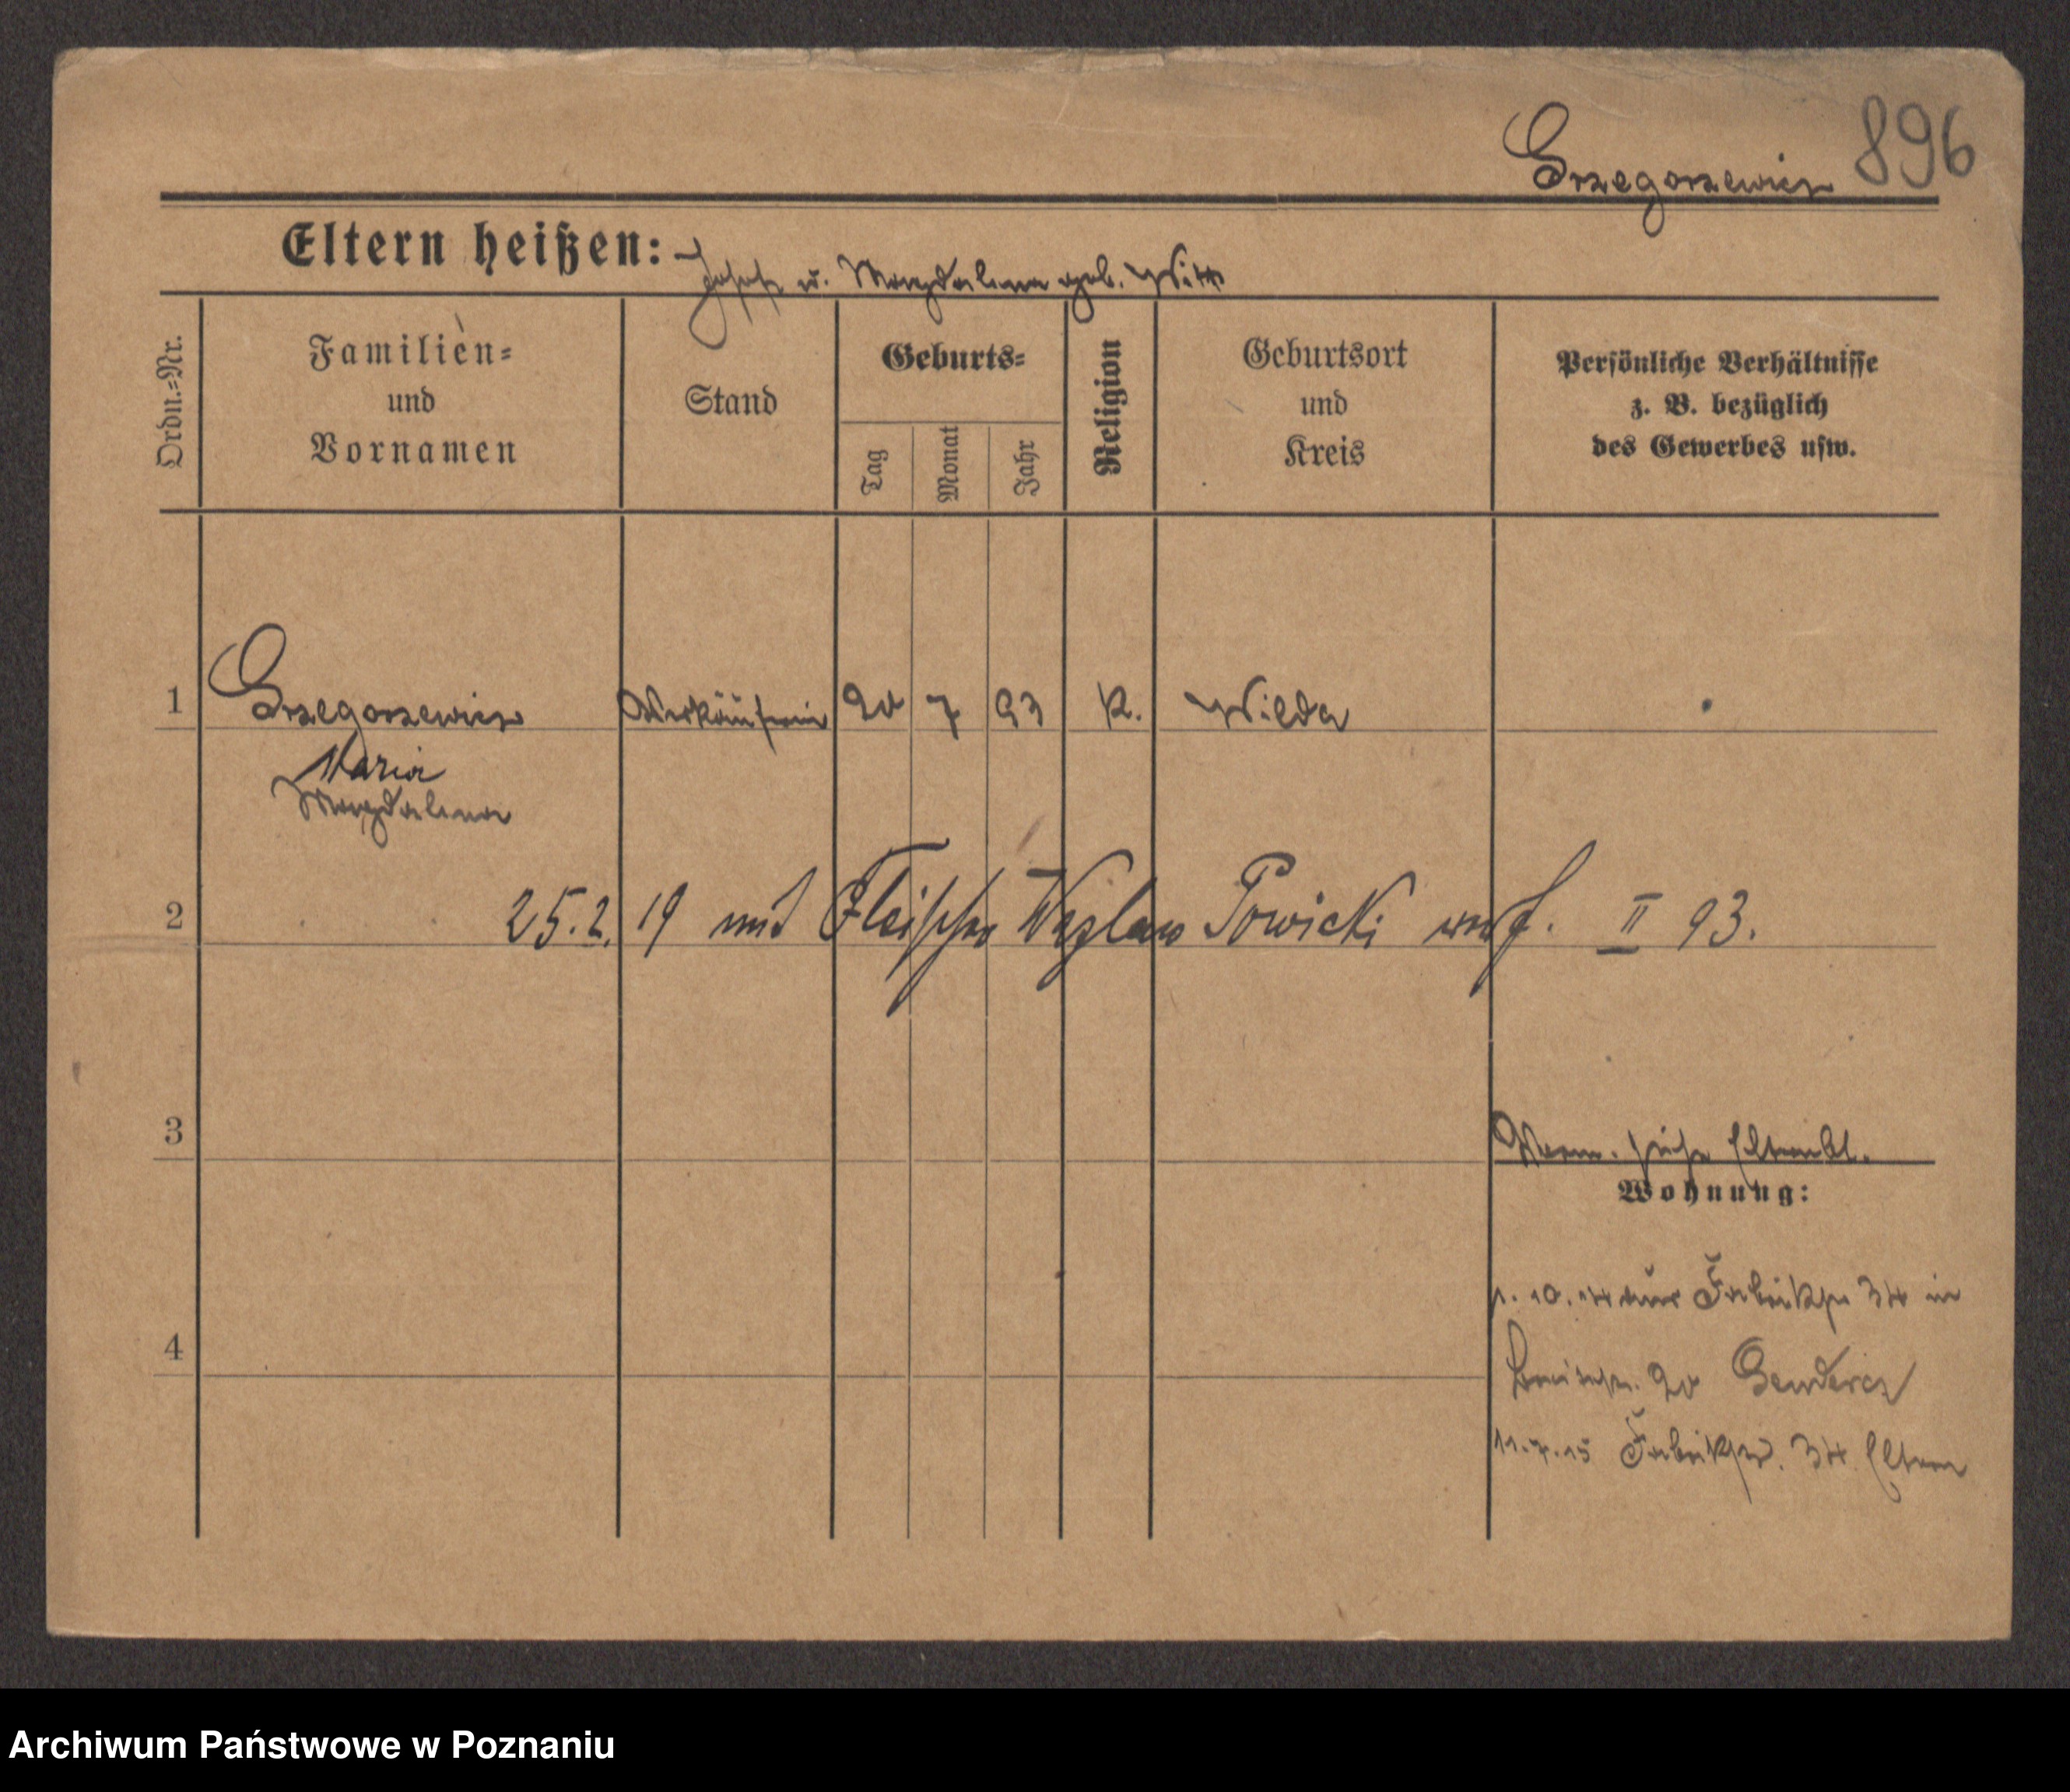 Grzegorzewicz 896
Eltern heißen: Josef u. Magdalena geb. Witt
Ordn.-Nr.
Familien-
und
Vornamen
Stand
Geburts-
Tag
Monat
Jahr
Religion
Geburtsort
und
Kreis
Persönliche Verhältnisse
z. B. bezüglich
des Gewerbes usw.
1 Grzegorzewicz Verkäuferin 20 7 93 K. Wilda
Maria
Magdalena
2 25.2.19 mit Fleischer Wazlaw Powicki verh. II 93.
3 Verm. siehe Elternbl.
Wohnung:
1. 10. 14 aus Fabrikstr 34 in
4 Breitestr. 20 Gendercz
11.7.15 Fabrikstr. 34 Eltern
Archiwum Państwowe w Poznaniu